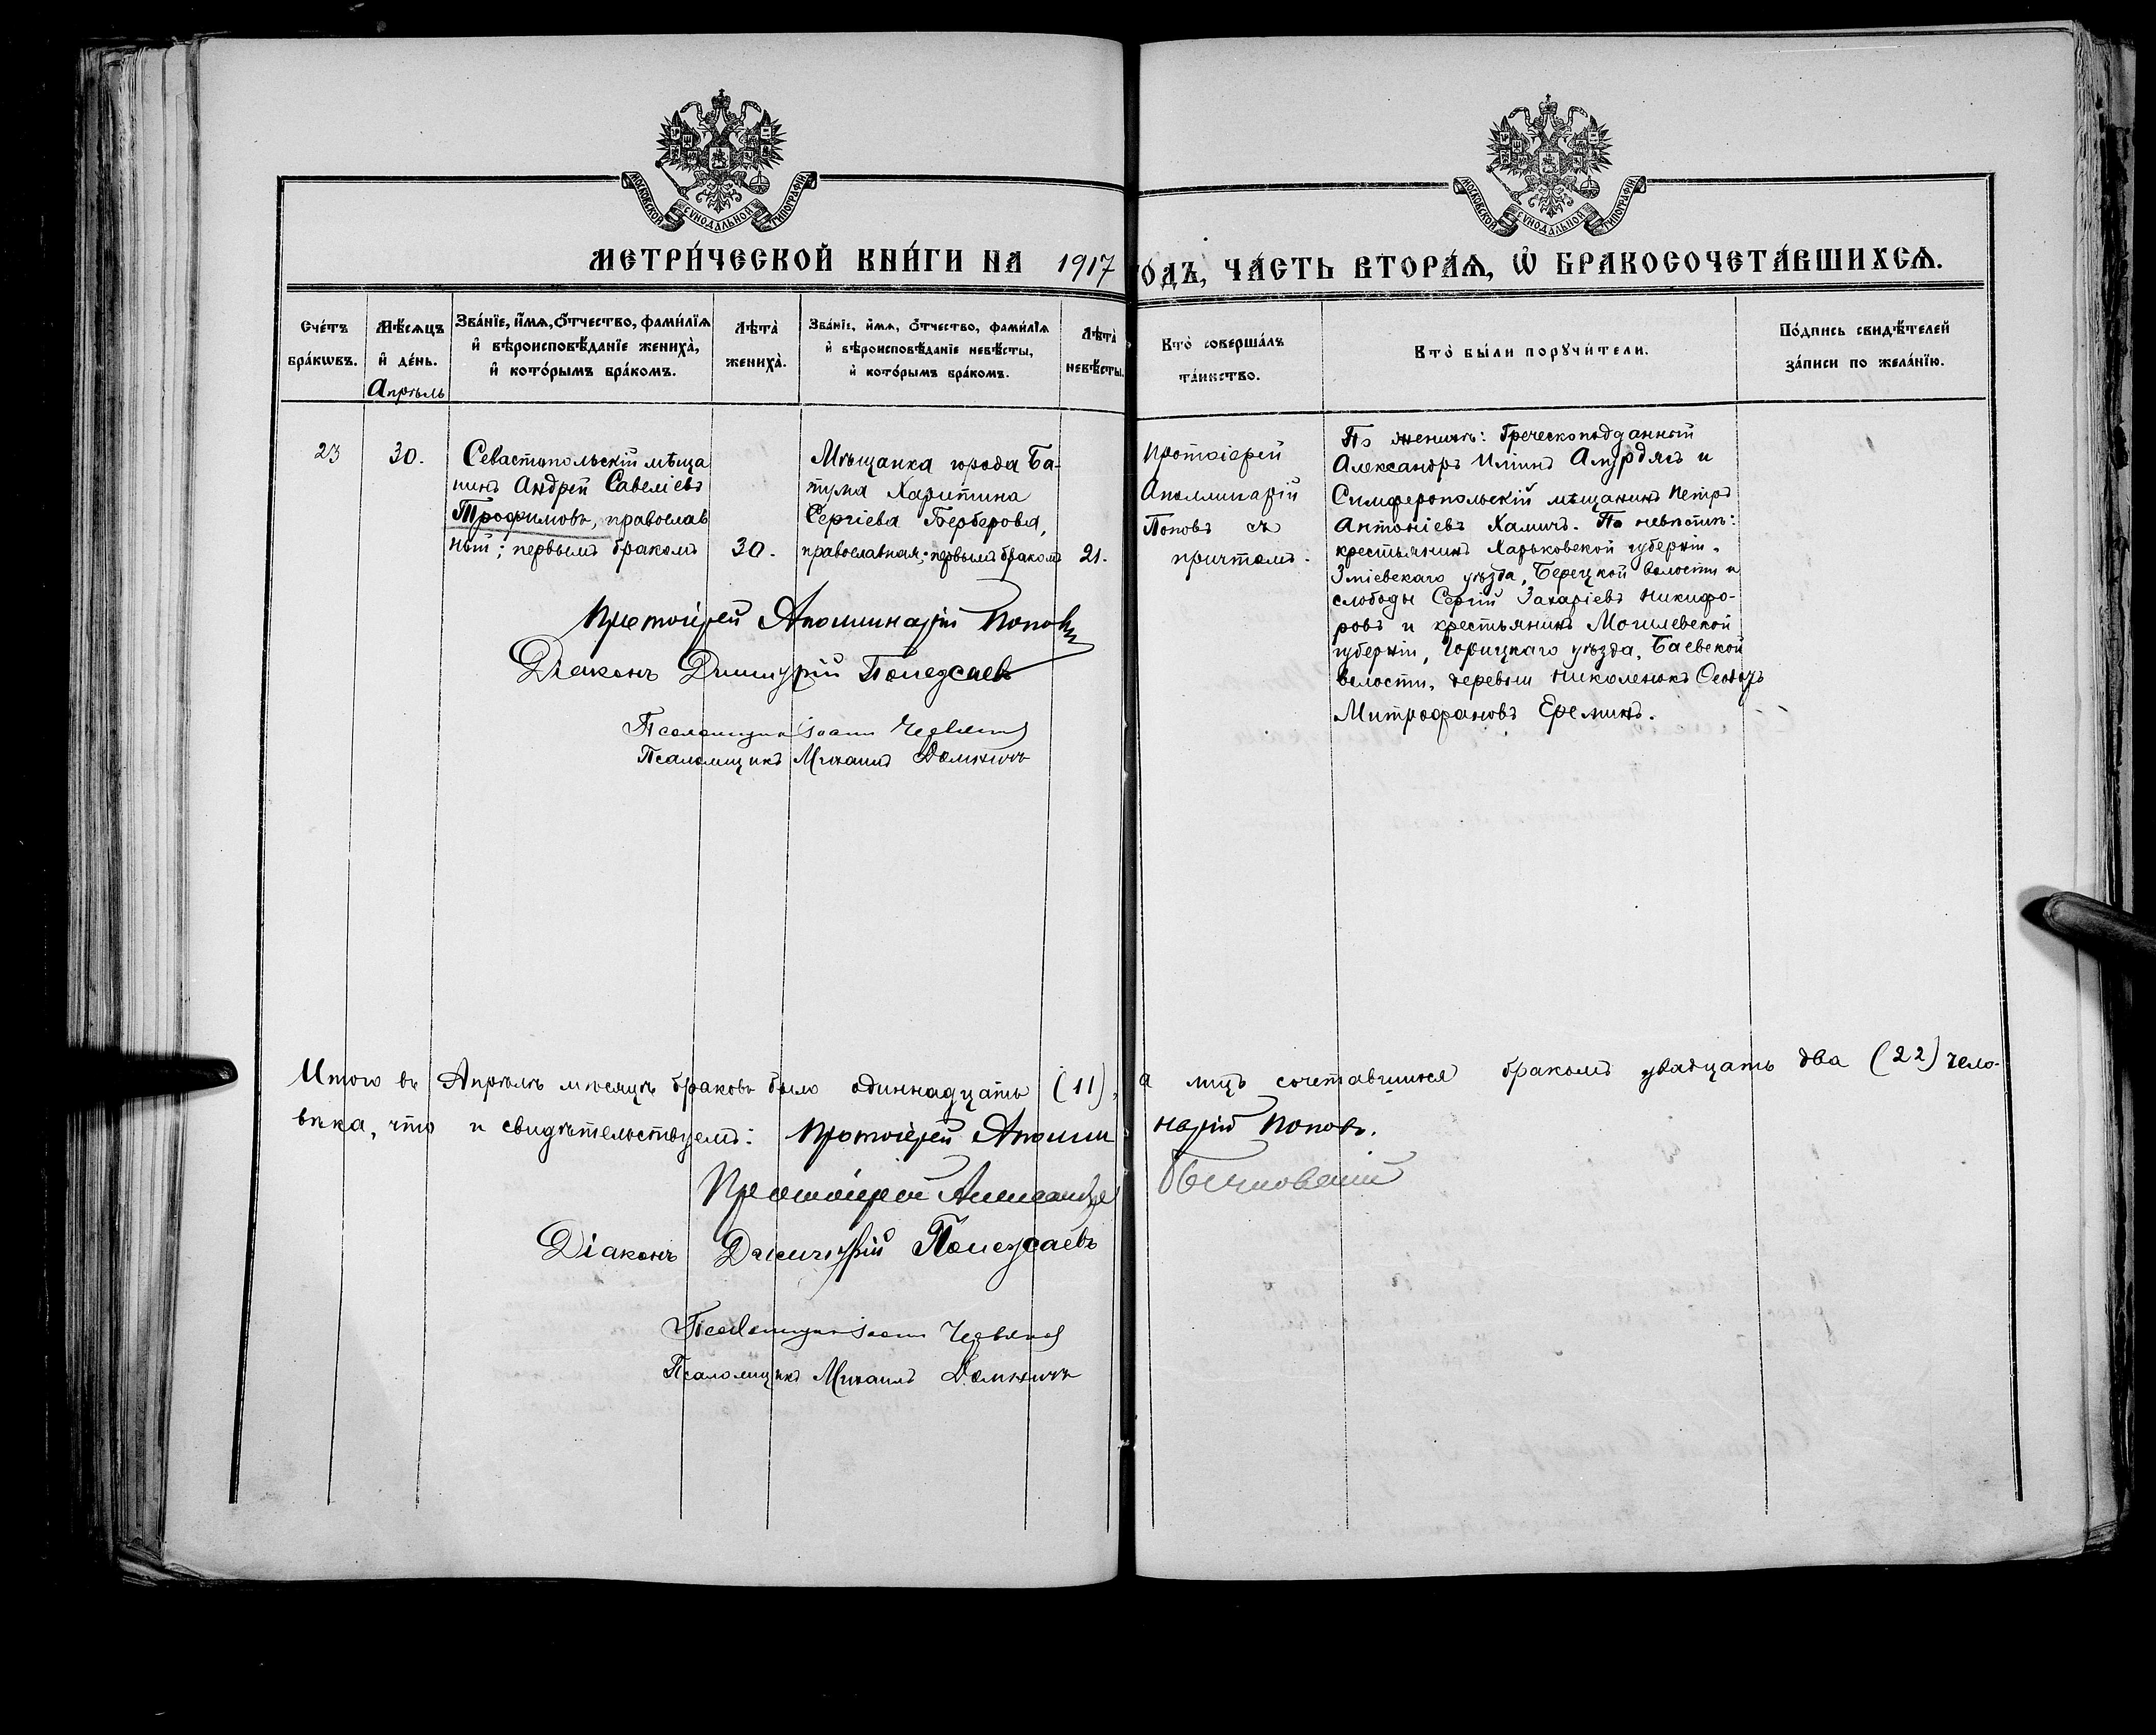 МОСКОВСКОЙ СѴНОДАЛЬНОЙ ТИПОГРАФІИ
МОСКОВСКОЙ СѴНОДАЛЬНОЙ ТИПОГРАФІИ
МЕТРИ́ЧЕСКОЙ КНИ́ГИ НА 1917
ГО́ДЪ, ЧА́СТЬ ВТОРА́Ѧ, Ѽ БРАКОСОЧЕТА́ВШИХСѦ.
Сче́тъ
бра́кѡвъ.
Мѣ́сѧцъ
и҆ де́нь.
Апрѣль
Зва́нїе, и҆́мѧ, ѻ҆́тчество, фами́лїѧ
и҆ вѣроисповѣ́данїе жениха̀,
и҆ кото́рымъ бра́комъ.
Лѣта̀
жениха̀.
Зва́нїе, и҆́мѧ, ѻ҆́тчество, фами́лїѧ
и҆ вѣроисповѣ́данїе невѣ́сты,
и҆ кото́рымъ бра́комъ.
Лѣта̀
невѣ́сты.
Кто̀ соверша́лъ
та́инство.
Кто̀ бы́ли порꙋчи́тели.
По́дпись свидѣ́телей
за́писи по жела́нїю.
23
30.
Севастопольскій мѣща
нинъ Андрей Савеліевъ
Трофимовъ, православ
ный; первымъ бракомъ
30.
Мѣщанка города Ба-
тума Харитина
Сергіева Берберова,
православная; первымъ бракомъ
21.
Протоіерей
Аполлинарій
Поповъ съ
причтомъ.
По женихѣ: Греческоподданный
Александръ Ильинъ и
Симферопольскій мѣщанинъ Петръ
Антоніевъ Халичъ. По невѣстѣ:
крестьянинъ Харьковской губерніи.
Зміевскаго уѣзда, Берецкой волости и
слободы Сергій Захаріевъ Никифо-
ровъ и крестьянинъ Могилевской
губерніи, Горицкаго уѣзда, Баевской
волости, деревни Николенокъ
Митрофановъ Ереминъ.
Протоіерей Аполлинарій Поповъ
Діаконъ Димитрій
Псаломщикъ Іоаннъ
Псаломщикъ Михаилъ
Итого въ Апрѣлѣ мѣсяцѣ браковъ было одиннадцать (11), а лицъ сочетавшихся бракомъ двадцать два (22) чело-
вѣка, что и свидѣтельствуемъ: Протоіерей Аполли нарій Поповъ.
Протоіерей Александръ
Діаконъ Димитрій
Псаломщикъ Іоаннъ
Псаломщикъ Михаилъ